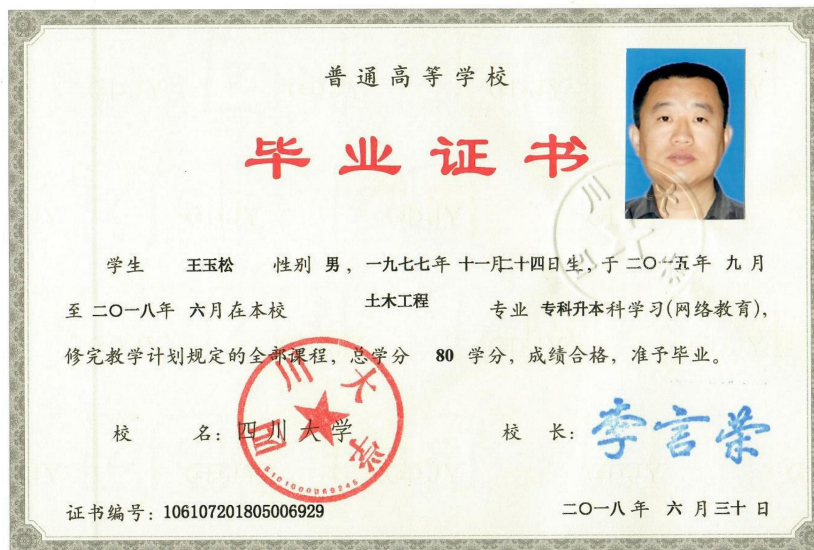 普通高等学校
毕业证书
学生 王玉松 性别 男，一九七七年 十一月二十四日生，于 二〇一五年 九 月
至 二〇一八年 六月在本校 土木工程 专业 专科升本科学习(网络教育)，
修完教学计划规定的全部课程，总学分 80 学分，成绩合格，准予毕业。
校 名：四川大学 校 长：李言荣
四川大学
5101000089245
四川大学
证书编号：106107201805006929 二〇一八年 六 月 三十 日